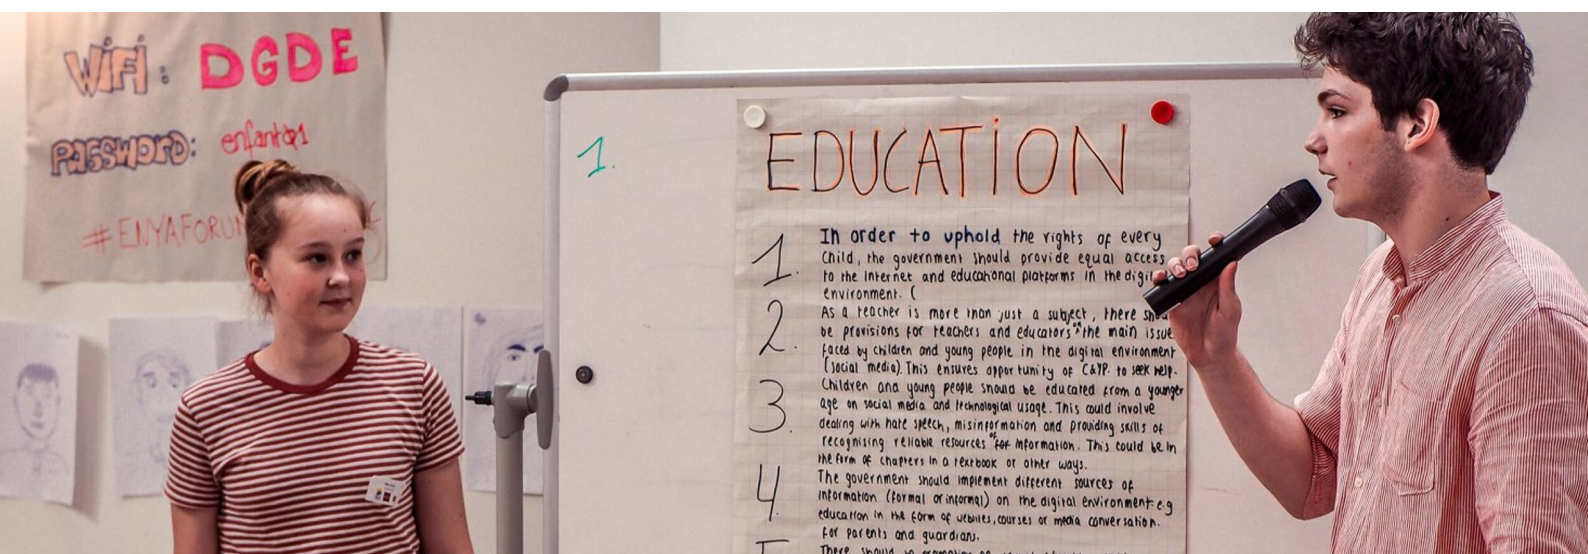 WiFi: DGDE
PASSWORD: enfant@1
#ENYAFORU
1.
EDUCATION
1. In order to uphold the rights of every
child, the government should provide equal access
to the internet and educational platforms in the
environment. (
2. As a teacher is more than just a subject, there
be provisions for teachers and educators on the main issue
faced by children and young people in the digital environment
(social media). This ensures opportunity of C&YP. to seek help.
3. Children and young people should be educated from a younger
age on social media and technological usage. This could involve
dealing with hate speech, misinformation and providing skills of
recognising reliable resources of for information. This could be in
the form of chapters in a textbook or other ways.
4. The government should implement different sources of
information (formal or informal) on the digital environment e.g
education in the form of websites, courses or media conversation.
for parents and guardians.
There should